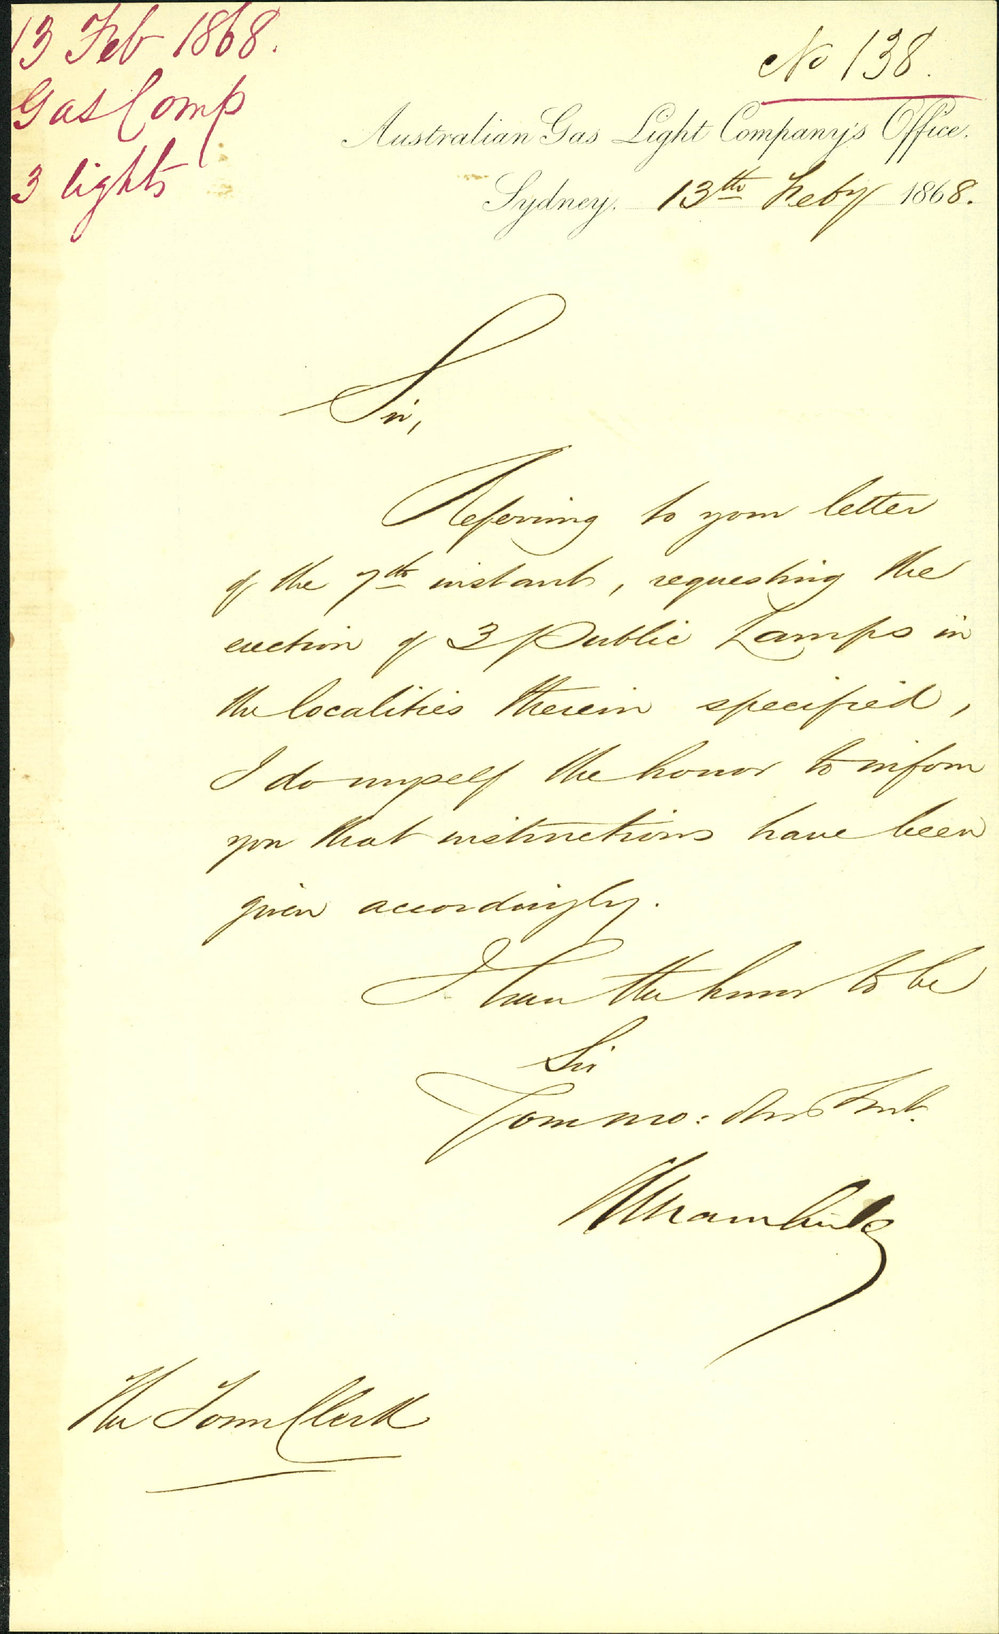 13 Feb 1868.
Gas Comp
3 lights
No 138.
Australian Gas Light Company's Office.
Sydney. 13th Feby 1868.
Sir,
Referring to your letter
of the 7th instant, requesting the
erection of 3 Public Lamps in
the localities therein specified,
I do myself the honor to inform
you that instructions have been
given accordingly.
I have the honor to be
Sir
Your mo: Obt Servt.
The Town Clerk